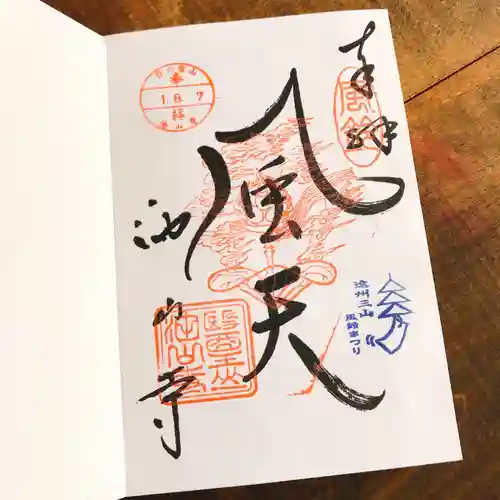 奉拝
風鈴
風天
法山寺
遠州三山
風鈴まつり
奉
1 8 7
拝